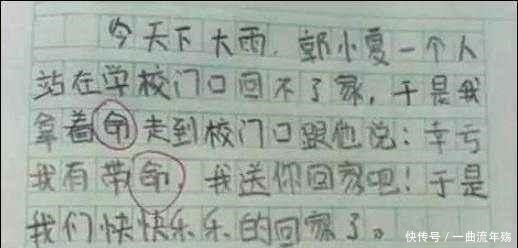 今天下大雨，郭小夏一个人
站在学校门口回不了家，于是我
拿着命走到校门口跟他说：幸亏
我有带命，我送你回家吧！于是
我们快快乐乐的回家了。
快传号 / 一曲流年殇